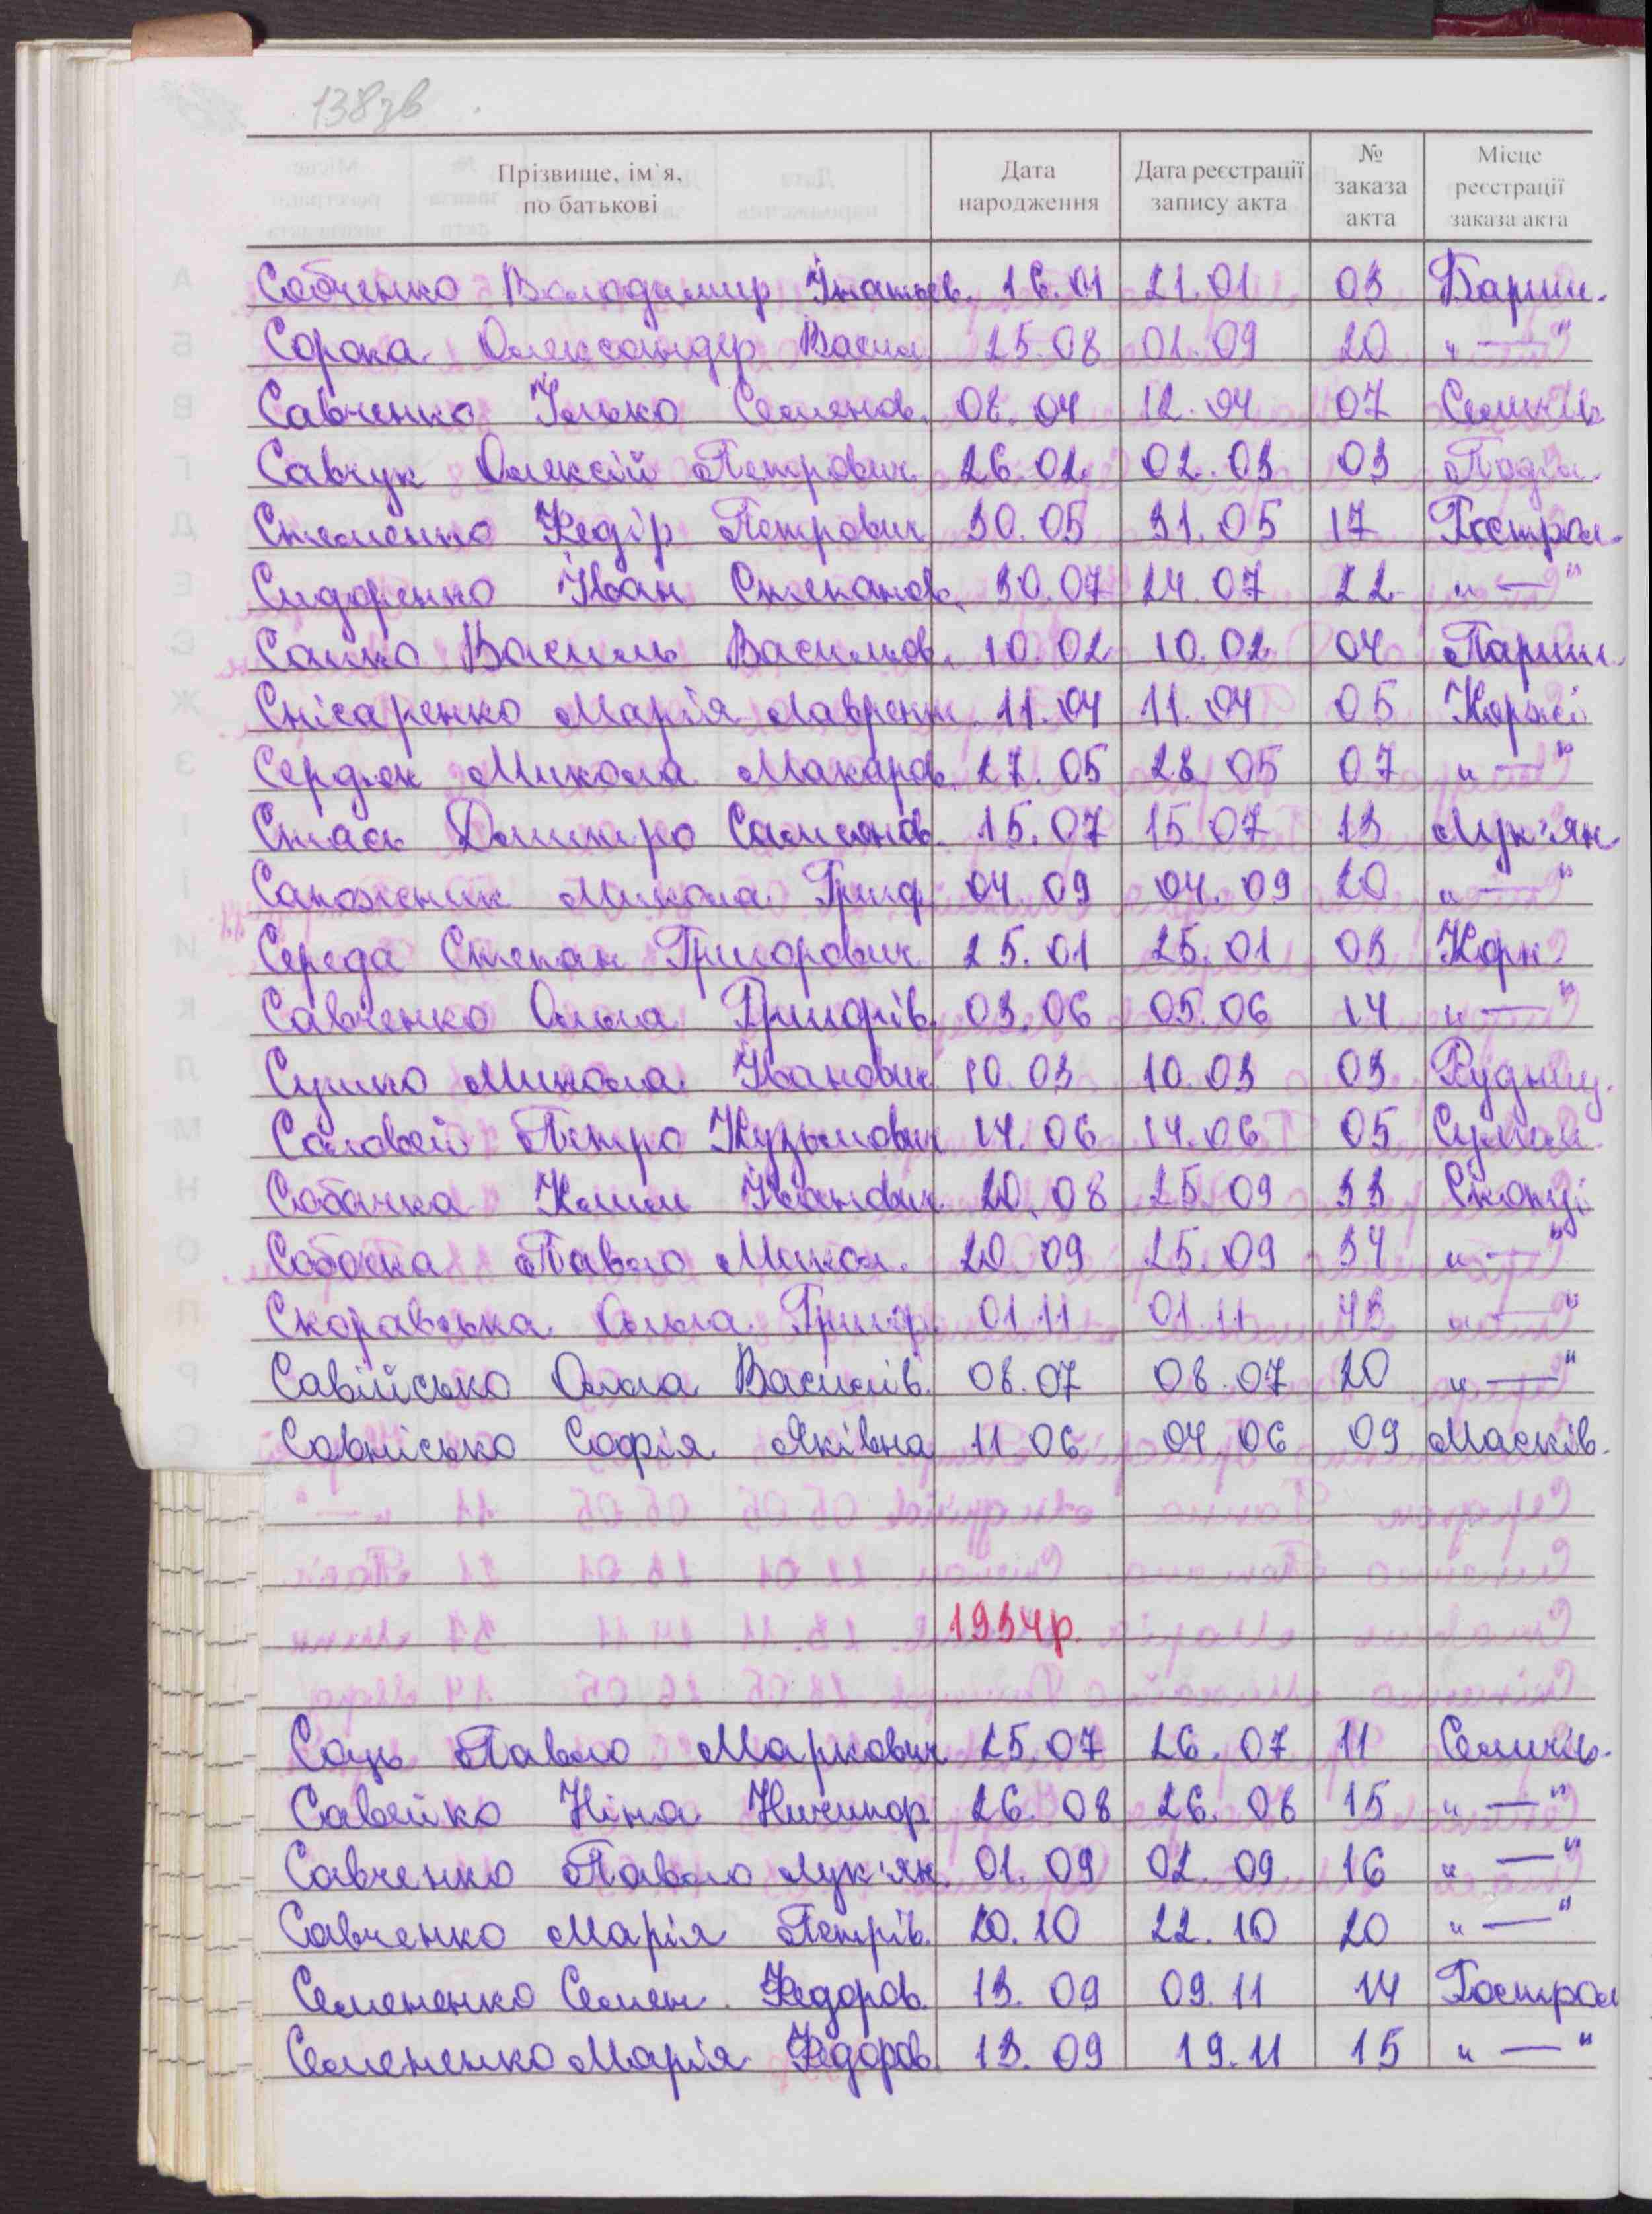 138зв
Прізвище, ім`я, по батькові Дата народження Дата реєстрації запису акта № заказа акта Місце реєстрації заказа акта
Собченко Володимир Ігнатьєв. 16.01 21.01 03 Бариш.
Сорока Олександер Васил 25.08 01.09 20 " — "
Савченко Ілько Семенов. 08.04 12.04 07 Семичів
Савчук Олексій Петрович 26.02 02.03 03 Поділ.
Стеменко Федір Петрович 30.05 31.05 17 Гострол.
Сидоренко Іван Степанов. 30.07 24.07 22 " — "
Сашко Василь Васильов. 10.02 10.02 04 Париш.
Снісаренко Марія Лаврент. 11.04 11.04 05 Коржі
Сердюк Микола Макаров. 27.05 28.05 07 " — "
Стась Дмитро Самсонов. 15.07 15.07 13 Лук'ян.
Сапожник Микола Григ 04.09 04.09 20 " — "
Середа Степан Григорович 25.01 25.01 03 Корн
Савченко Ольга Григорів. 03.06 05.06 14 " — "
Сушко Микола Іванович 10.03 10.03 03 Рудниц.
Соловей Петро Кузьмович 14.06 14.06 05 Сулим
Собачка Клим Іванович 20.08 25.09 33 Скопці
Собачка Павло Микол. 20.09 25.09 34 " — "
Скоравська Ольга Григ. 01.11 01.11 43 " — "
Савійсько Ольга Василів. 08.07 08.07 20 " — "
Савнісько Софія Яківна 11.06 04.06 09 Масків.
1934р.
Соць Павло Маркович 25.07 26.07 11 Семичів.
Савейко Ніна Ничипор 26.08 26.08 15 " — "
Савченко Павло Лук'ян. 01.09 02.09 16 " — "
Савченко Марія Петрів. 20.10 22.10 20 " — "
Семененко Семен Федоров. 13.09 09.11 14 Гострол
Семененко Марія Федоров. 13.09 19.11 15 " — "